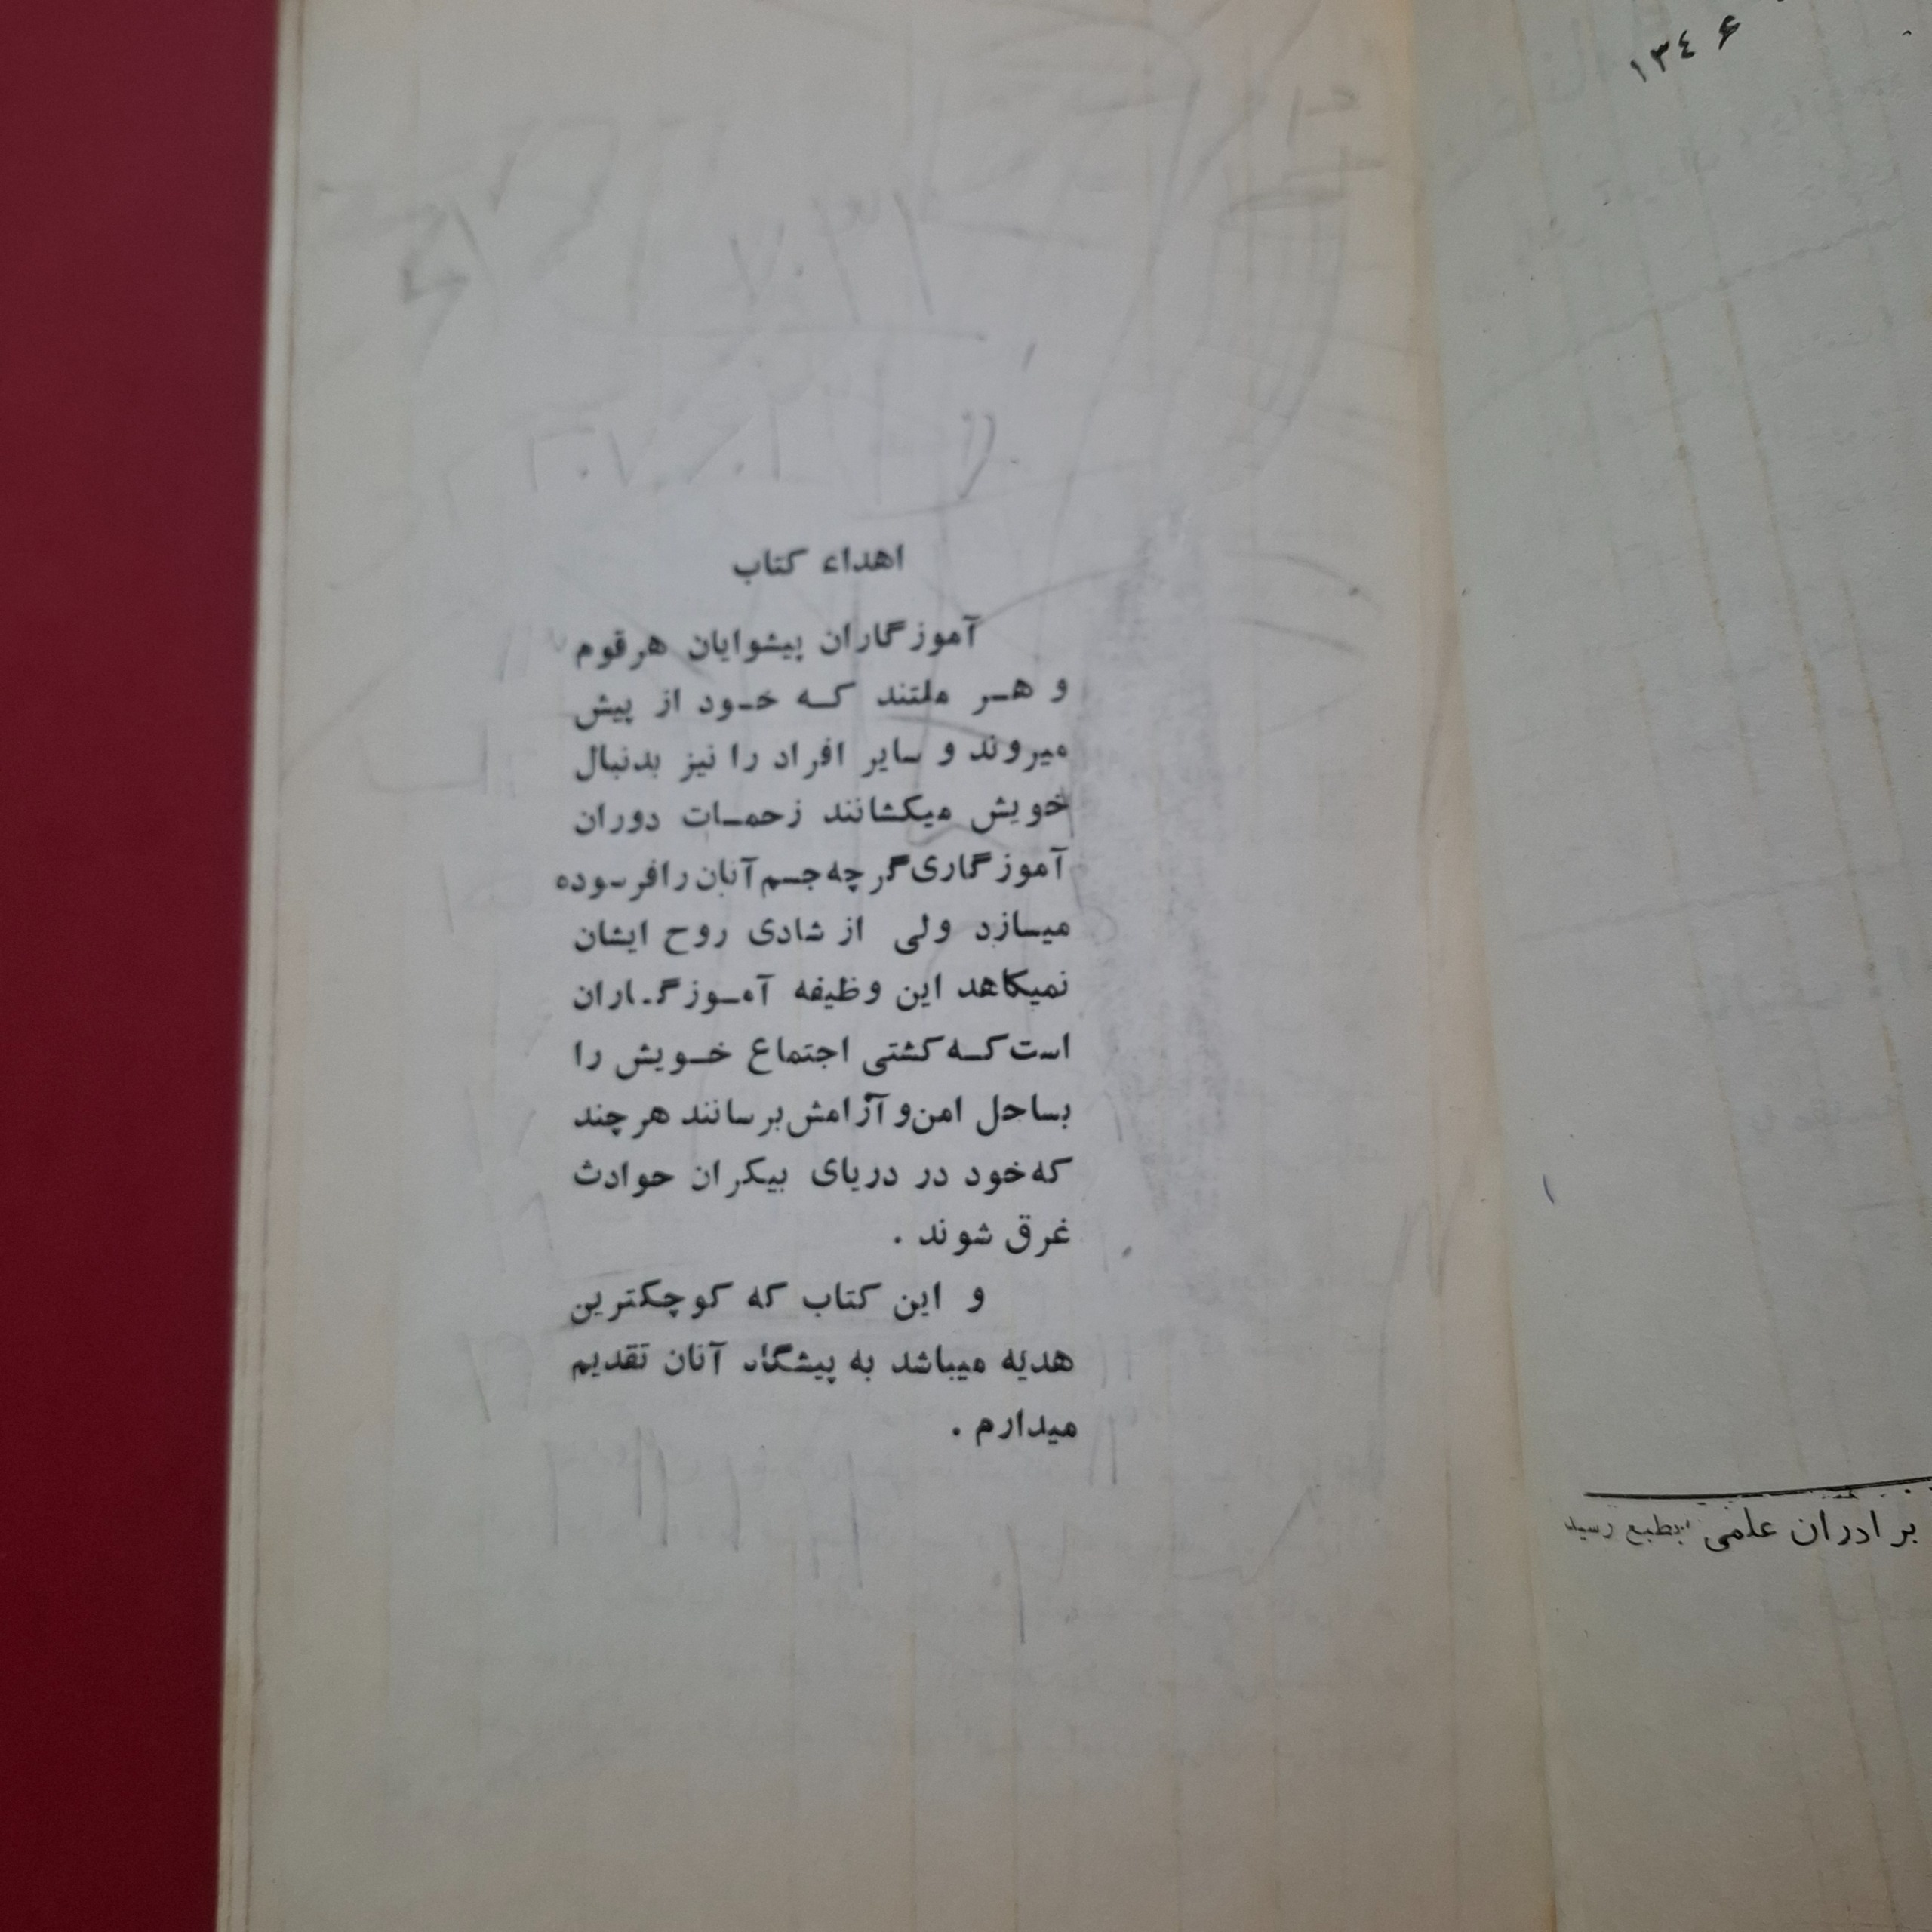 ۱۳٤۶
اهداء کتاب
آموزگاران پیشوایان هرقوم
و هـر ملتند کـه خـود از پیش
میروند و سایر افراد را نیز بدنبال
خویش میکشانند زحمـات دوران
آموزگاری گرچه جسم آنان را فرسوده
میسازد ولی از شادی روح ایشان
نمیکاهد این وظیفه آمـوزگـاران
است کـه کشتی اجتماع خـویش را
بساحل امن و آرامش برسانند هرچند
که خود در دریای بیکران حوادث
غرق شوند .
و این کتاب که کوچکترین
هدیه میباشد به پیشگاه آنان تقدیم
میدارم .
برادران علمی بطبع رسید